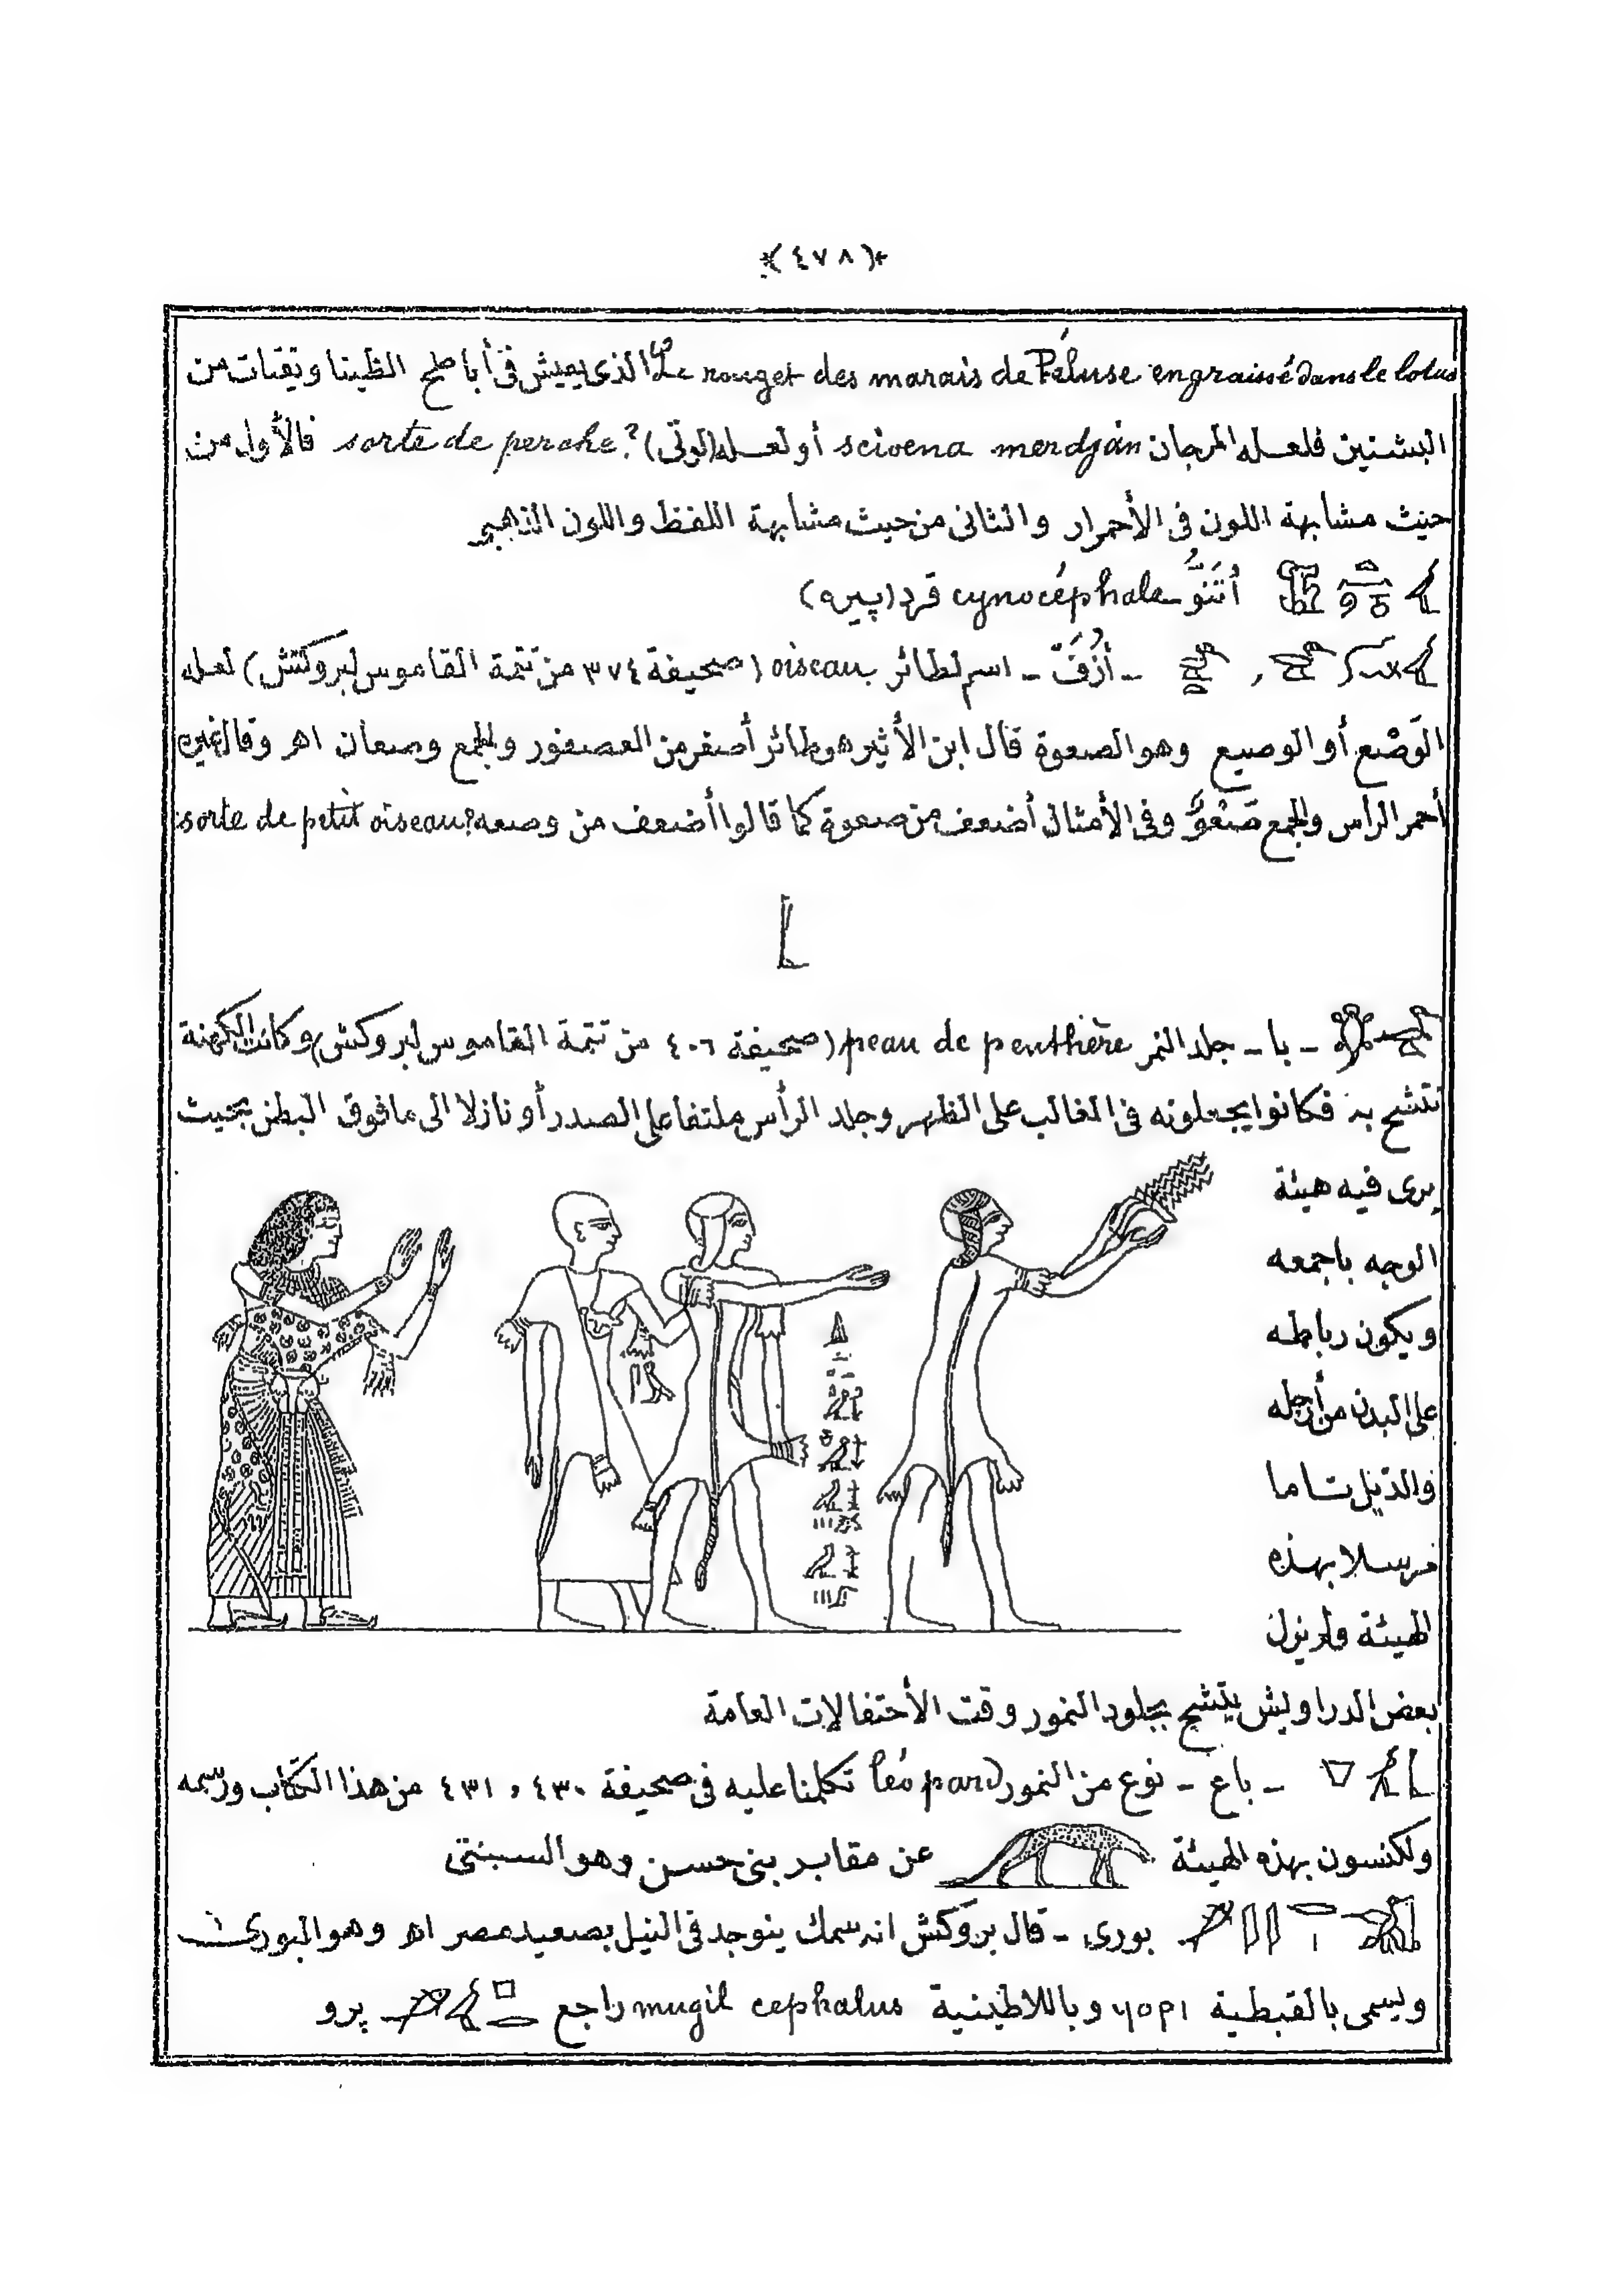 *(٤٧٨)*
Le rouget des marais de Péluse engraissé dans le lotus الذى يعيش فى أباطح الظينا ويقتات من
البشنين فلعله المرجان scioena merdján أو لعله (لوتى) ?sorte de perche فالأول من
حيث مشابهة اللون فى الأحمرار والثانى من حيث مشابهة اللفظ واللون الذهبى
أُتَنوُّ - cynocéphale قرد (پيره)
- أَزُفَّ - اسم لطائر oiseau (صحيفة ٣٧٤ من تتمة القاموس لبروكش) لعله
الوَصْع أو الوصيع وهو الصعوة قال ابن الأثير هو طائر أصغر من العصفور والجمع وصعان اهر وقال غيره
أحمر الرأس والجمع صَعْوٌ وفى الأمثال أضعف من صعوة كما قالوا أضعف من وصعه ?sorte de petit oiseau
- با - جلد النمر peau de penthère (صحيفة ٤٠٦ من تتمة القاموس لبروكش) وكانت الكهنة
تتشح به فكانوا يجعلونه فى الغالب على الظهر وجلد الرأس ملتفا على الصدر أو نازلا الى ما فوق البطن بحيث
يرى فيه هيئة
الوجه باجمعه
ويكون رباطه
على البدن من أرجله
والذيل تاما
مرسلا بهذه
الهيئة ولم يزل
بعض الدراويش يتشح بجلود النمور وقت الأحتفالات العامة
- باع - نوع من النمور léopard تكلمنا عليه فى صحيفة ٤٣٠ و ٤٣١ من هذا الكتاب ورسمه
ولكنسون بهذه الهيئة عن مقابر بنى حسن وهو السبنتى
بورى - قال بروكش انه سمك يتوجد فى النيل بصعيد مصر اهر وهو البورى
ويسمى بالقبطية ϥopi وباللاطينية mugil cephalus راجع پرو